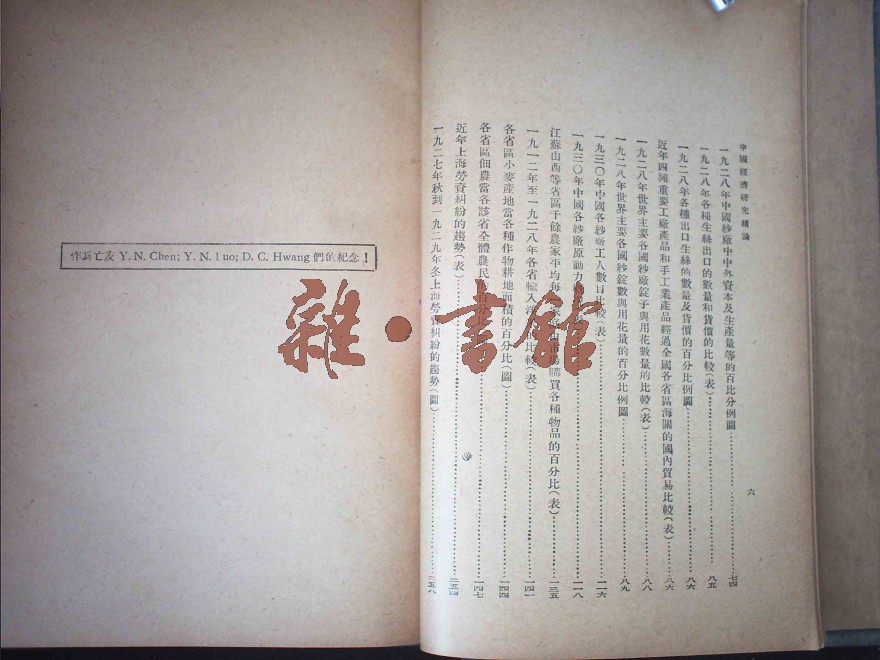 中國經濟研究緒論
六
一九二八年中國紗廠中中外資本及生產量等的百分比例圖……七四
一九二八年各種生絲出口的數量和貨價的比較(表)……八五
一九二八年各種出口生絲的數量及貨價的百分比例圖……八六
近年四種重要工廠產品和手工業產品經過全國各省區海關的國內貿易比較(表)……八六
一九二八年世界主要各國紗廠錠子與用花數量的比較(表)……八八
一九二八年世界主要各國紗錠數與用花量的百分比例圖……八九
一九三〇年中國各紗廠工人數目比較(表)……一一六
一九三〇年中國各紗廠原動力……一一八
江蘇山西等省區千餘農家平均每一家 購買各種物品的百分比(表)……一三五
一九一二年至一九二八年各省輸入洋 的比較(表)……一四一
各省區小麥產地當各種作物耕地面積的百分比(圖)……一四四
各省區佃農當各該省全體農民 百分比……一四七
近年上海勞資糾紛的趨勢(表)……二五四
一九二七年秋到一九二九年冬上海勞資糾紛的趨勢(圖)……二五八
作爲亡友 Y. N. Chen; Y. N. Luo; D. C. Hwang 們的紀念!
雜·書館